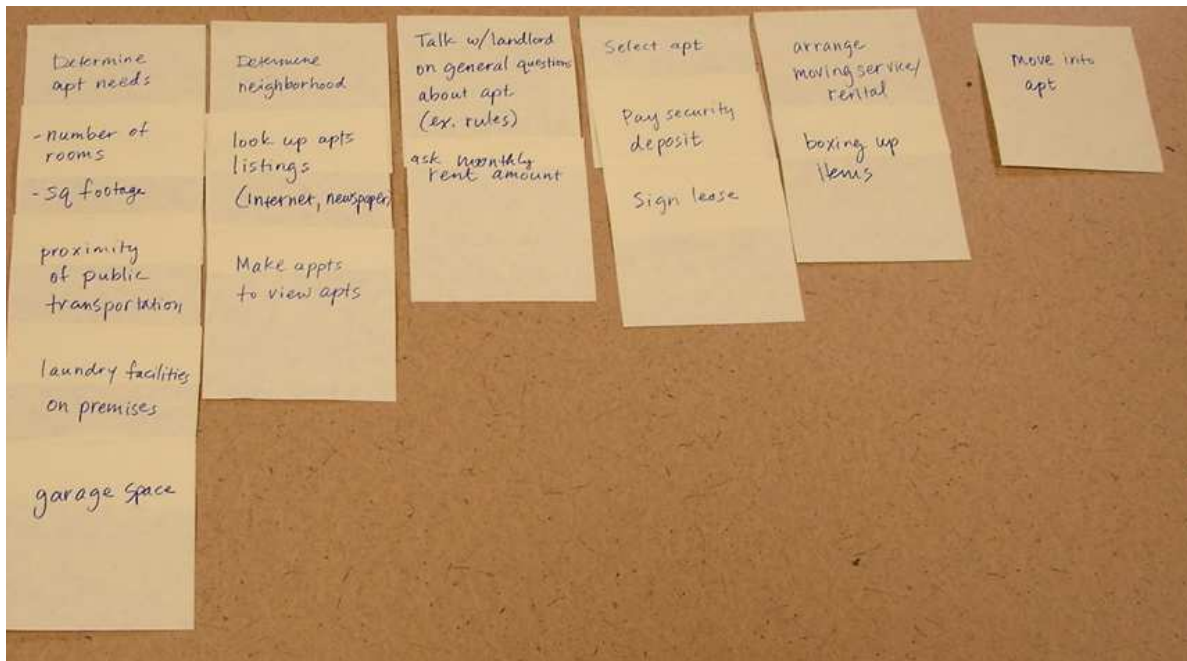 Determine
apt needs
-number of
rooms
-sq footage
proximity
of public
transportation
laundry facilities
on premises
garage space
Determine
neighborhood
look up apts
listings
(internet, newspaper)
Make appts
to view apts
Talk w/landlord
on general questions
about apt
(ex. rules)
ask monthly
rent amount
Select apt
Pay security
deposit
Sign lease
arrange
moving service/
rental
boxing up
items
Move into
apt